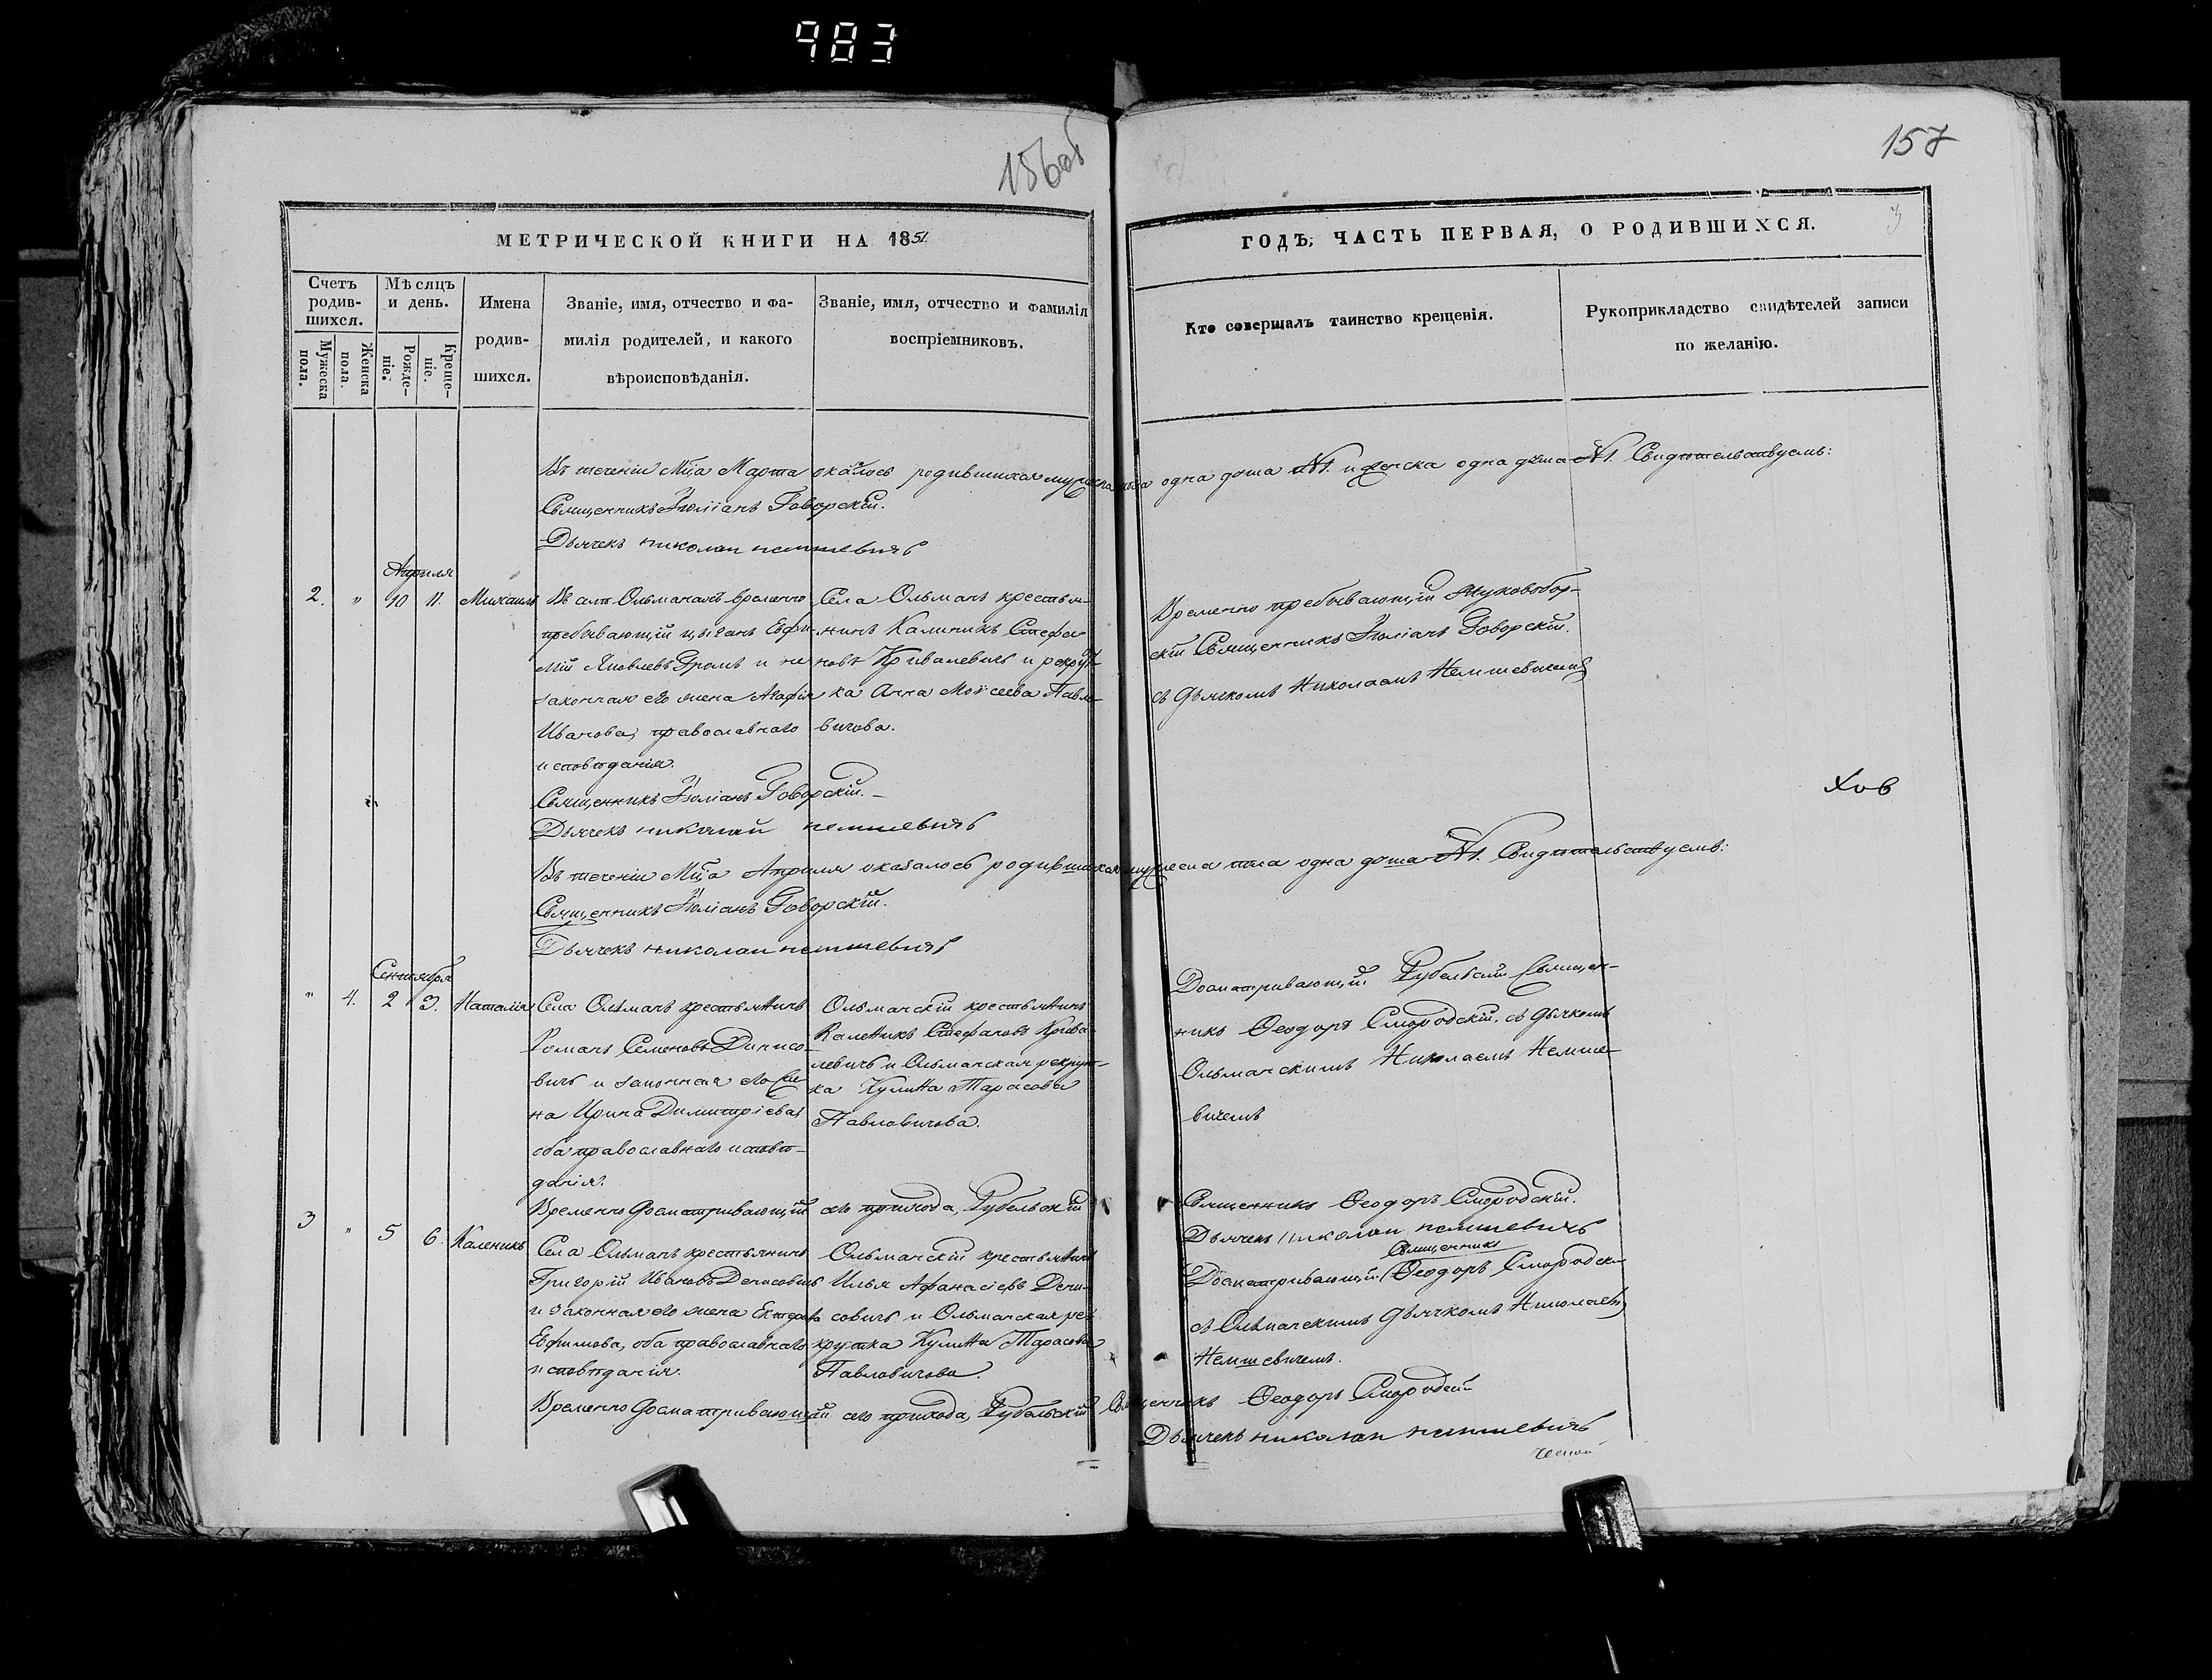 983
156об
157
МЕТРИЧЕСКОЙ КНИГИ НА 1851.
ГОДЪ, ЧАСТЬ ПЕРВАЯ, О РОДИВШИХСЯ.
Счетъ родив-шихся.
Мужеска пола.
Женска пола.
Мѣсяцъ и день.
Рожде-ніе.
Креще-ніе.
Имена родив-шихся.
Званіе, имя, отчество и фа-
милія родителей, и какого
вѣроисповѣданія.
Званіе, имя, отчество и фамилія
воспріемниковъ.
Кто совершалъ таинство крещенія.
Рукоприкладство свидѣтелей записи
по желанію.
Въ теченіи Мца Марта родившихся одна душа №1. и женска одна душа №1. Свидѣтельствуемъ:
Священникъ Іюліанъ Говорскій.
Дьячекъ николаи немшевичъ
Апрѣля
2. " 10 11. Михаилъ
Въ селѣ Ольманахъ временно
пребывающій цыганъ Евфи-
мій Яковлевъ Громъ и не
законная его жена Агафія
Иванова, православнаго
исповѣданія.
Села Ольманъ крестья-
нинъ Калиникъ Стефа-
новъ Кривалевичъ и рекрут-
ка Анна Моѵсеева Павло-
вичова.
Временно пребывающій
скій Священникъ Іюліанъ Говорскій.
съ дьячкомъ Николаемъ Немшевичемъ
Священникъ Іюліанъ Говорскій.
Дьячекъ николай немшевичъ
Хов
Въ теченіи Мца Апрѣля оказалось родившихся мужеска пола одна душа №1. Свидѣтельствуемъ:
Священникъ Іюліанъ Говорскій.
Дьячекъ николаи немшевичъ
Сентября
" 4. 2 3. Наталія
Села Ольманъ крестьянинъ
Романъ Семеновъ Динисо-
вичъ и законная его же-
на Ирина Димитріева,
оба православнаго исповѣ-
данія.
Ольманскій крестьянинъ
Каленикъ Стефановъ Крива-
левичъ и Ольманская рекрут-
ка Кулина Тарасова
Павловичова.
Досматривающій Рубельскій Священ-
никъ Ѳеодоръ Смородскій, съ дьячкомъ
Ольманскимъ Николаемъ Немше-
вичемъ
Временно досматривающій сего прихода, Рубельскій Священникъ Ѳеодоръ Смородскій.
Дьячекъ николаи немшевичъ
3 " 5 6. Каленикъ
Села Ольманъ крестьянинъ
Григорій Ивановъ Денисовичъ
и законная его жена
Евфимова, оба православнаго
исповѣданія.
Ольманскій крестьянинъ
Илья Афанасіевъ Дени-
совичъ и Ольманская ре-
крутка Кулина Тарасова
Павловичова.
Священникъ
Досматривающій Ѳеодоръ Смородскій
съ Ольманскимъ дьячкомъ Николаемъ
Немшевичемъ.
Временно досматривающій сего прихода, Рубельскій Священникъ Ѳеодоръ Смородскій
Дьячекъ николаи немшевичъ